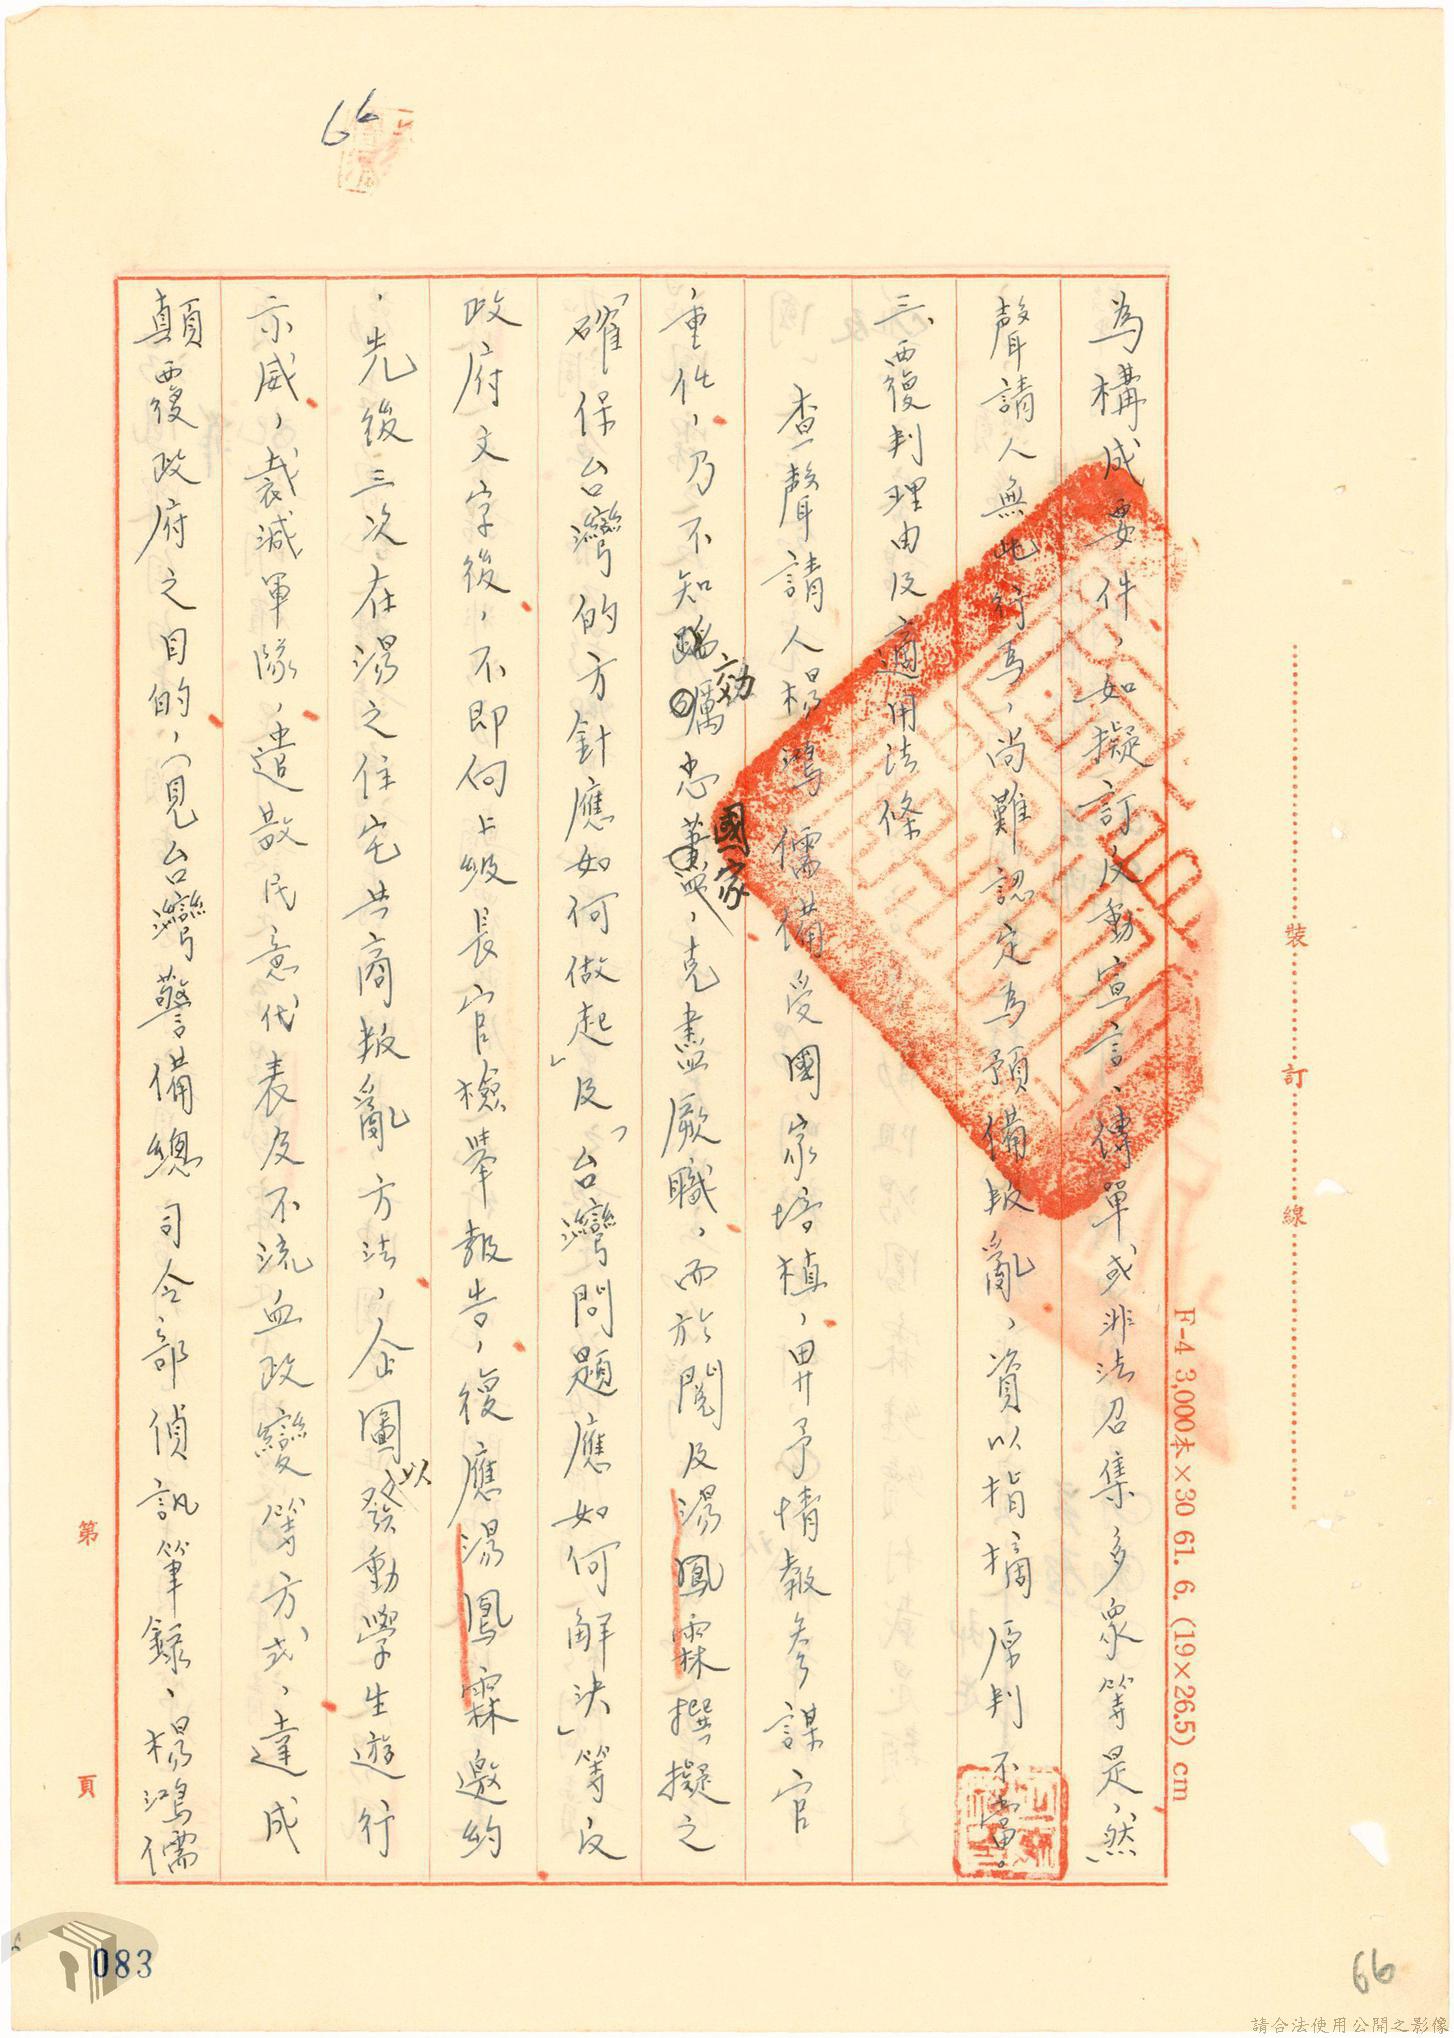 66
為構成要件，如擬訂反動宣言、傳單或非法召集多衆等是，「然
聲請人無此行為，尚難認定為預備叛亂，資以指摘原判不當。
三、覆判理由及適用法條
查聲請人楊鴻儒備受國家培植，畀予情報參謀官
重任，乃不知効忠國家，克盡厥職，而於閱及湯鳳霖撰擬之
「確保台灣的方針應如何做起」及「台灣問題應如何解決」等反
政府文字後，不即向上級長官檢舉報告，復應湯鳳霖邀約
，先後三次在湯之住宅共商叛亂方法，企圖以發動學生遊行
示威，裁減軍隊，遣散民意代表及不流血政變等方式，達成
顛覆政府之目的，（見台灣警備總司令部偵訊筆錄，楊鴻儒
裝
訂
線
F-4 3,000本×30 61. 6. (19×26.5) cm
第
頁
083
66
請合法使用公開之影像